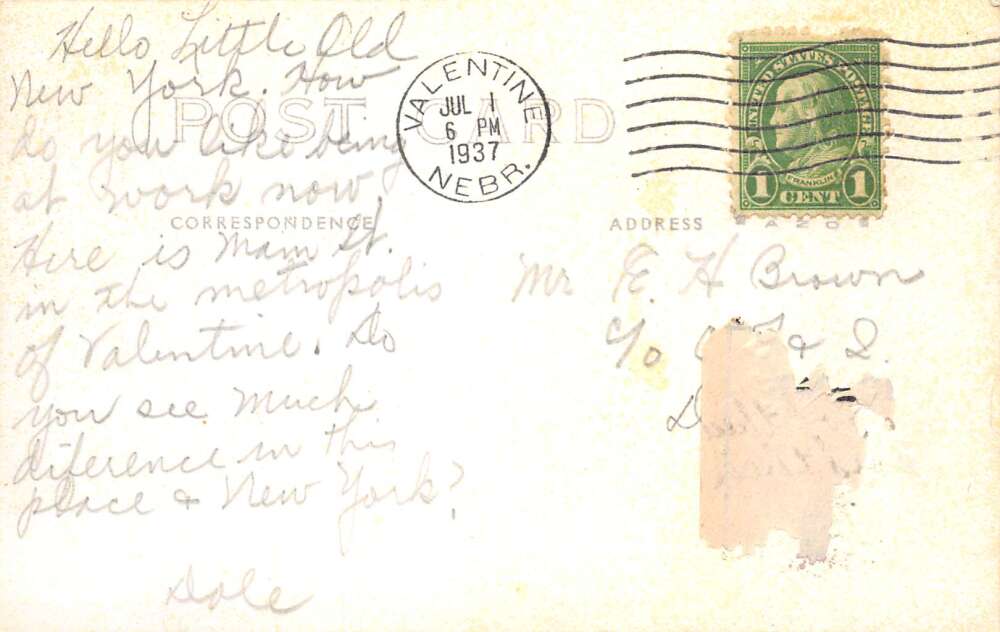 Hello Little Old
New York. How
do you like being
at work now
Here is Main St.
in the metropolis
of Valentine. Do
you see much
diference in this
place & New York?
Dole
POST CARD
CORRESPONDENCE
ADDRESS
VALENTINE
JUL 1
6 PM
1937
NEBR.
UNITED STATES POSTAGE
FRANKLIN
1 CENT 1
AZO
Mr E. H Brown
c/o & I.